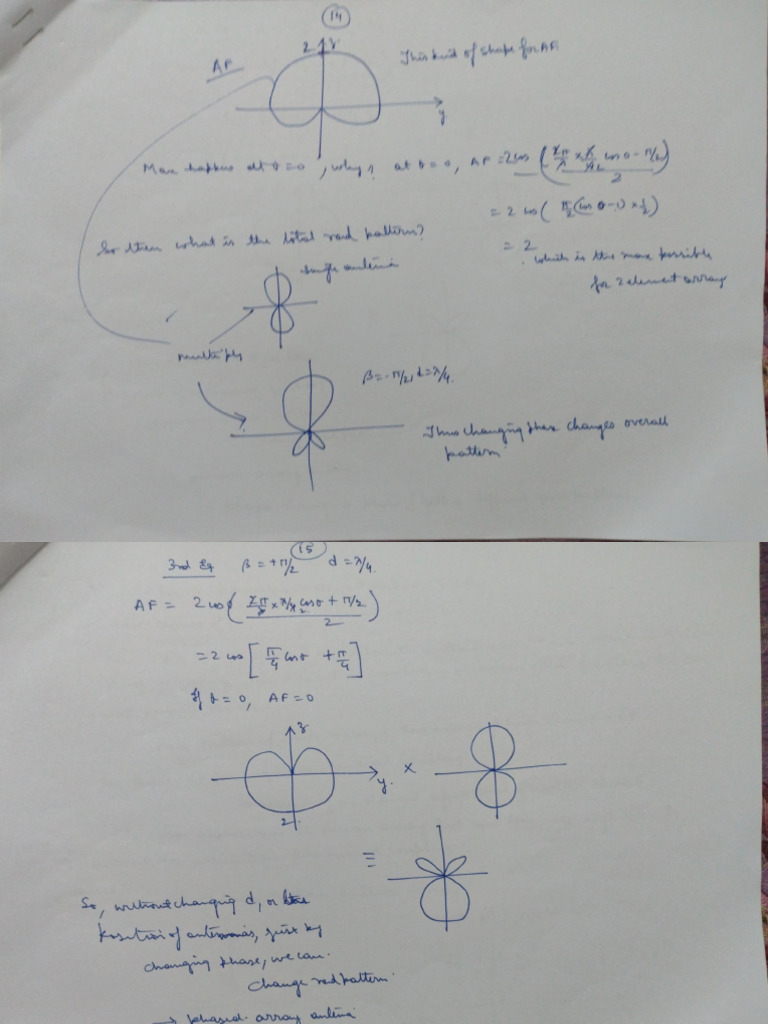 14
2 z
AF
This kind of shape for AF.
y
Max happens at θ=0, why? at θ=0, AF = 2cos (2π/λ × λ/4 cosθ - π/2 / 2)
= 2 cos( π/2 (cosθ-1) × 1/2)
So then what is the total rad pattern?
= 2
single antenna
which is the max possible
for 2 element array
multiply
β=-π/2, d=λ/4.
Thus changing phase changes overall
pattern
15
3rd Eg β = +π/2 d = λ/4.
AF = 2 cos( 2π/λ × λ/4 cosθ + π/2 / 2 )
= 2 cos [ π/4 cosθ + π/4 ]
If θ = 0, AF = 0
z
y. ×
2
≡
So, without changing d, or the
position of antennas, just by
changing phase, we can
change rad pattern.
→ phased array antenna